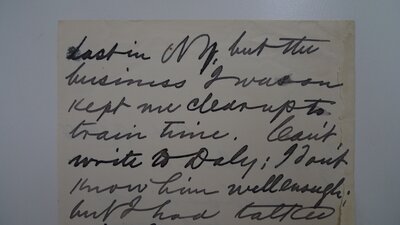 last in N.Y., but the
business I was on
kept me clear up to
train time. Can't
write to Daly; I don't
know him well enough;
but I had talked